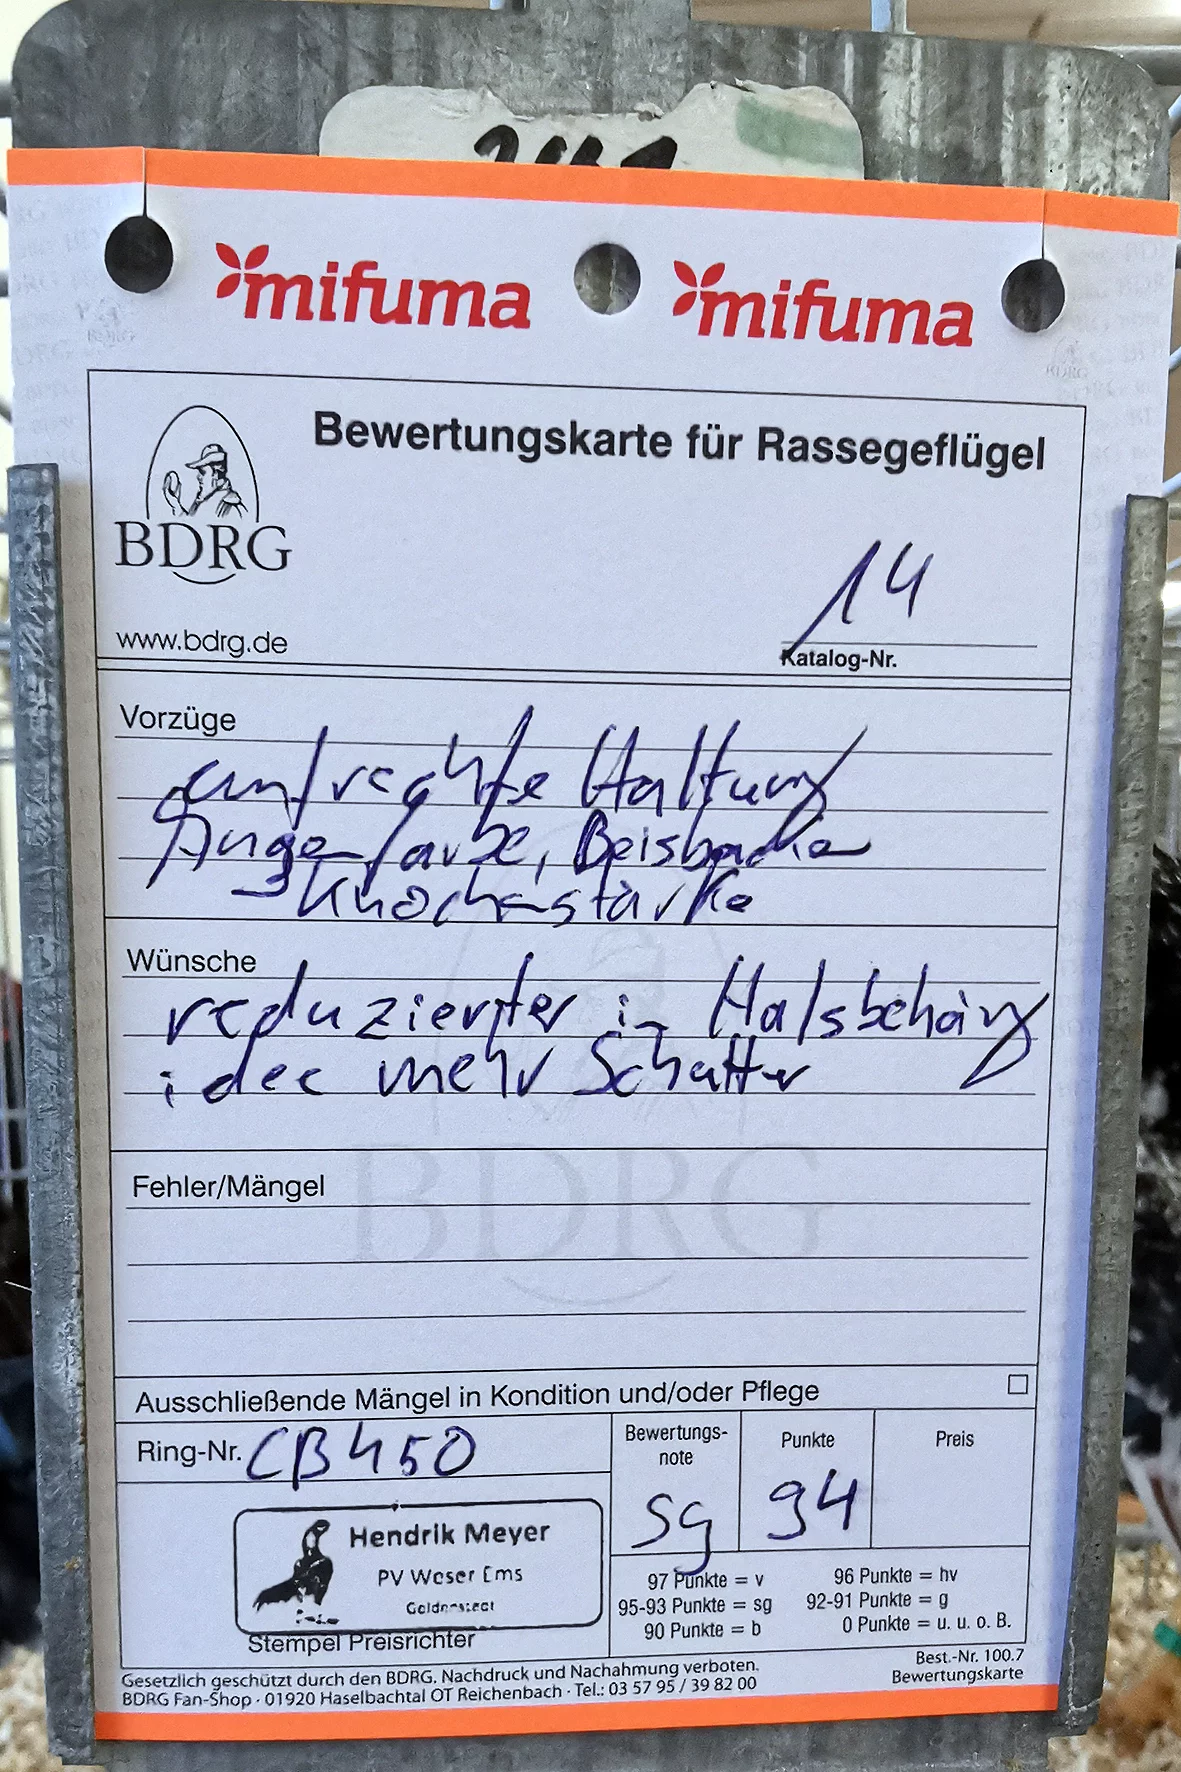 mifuma mifuma
Bewertungskarte für Rassegeflügel
BDRG
14
www.bdrg.de
Katalog-Nr.
Vorzüge
aufrechte Haltung
Augenfarbe, Beisbacken
Knochenstärke
Wünsche
reduzierter in Halsbehäng
idee mehr Schatter
BDRG
Fehler/Mängel
Ausschließende Mängel in Kondition und/oder Pflege
Ring-Nr. CB 450
Bewertungs-
note
Punkte
Preis
sg
94
Hendrik Meyer
PV Weser Ems
Goldenstedt
Stempel Preisrichter
97 Punkte = v
96 Punkte = hv
95-93 Punkte = sg
92-91 Punkte = g
90 Punkte = b
0 Punkte = u. u. o. B.
Gesetzlich geschützt durch den BDRG. Nachdruck und Nachahmung verboten.
BDRG Fan-Shop · 01920 Haselbachtal OT Reichenbach · Tel.: 03 57 95 / 39 82 00
Best.-Nr. 100.7
Bewertungskarte